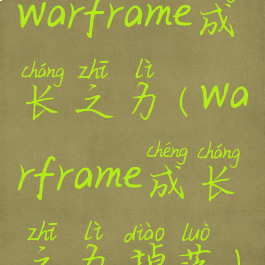 warframe成
cháng zhī lì
长之力(wa
chéng cháng
rframe成长
zhī lì diào luò
之力掉落)